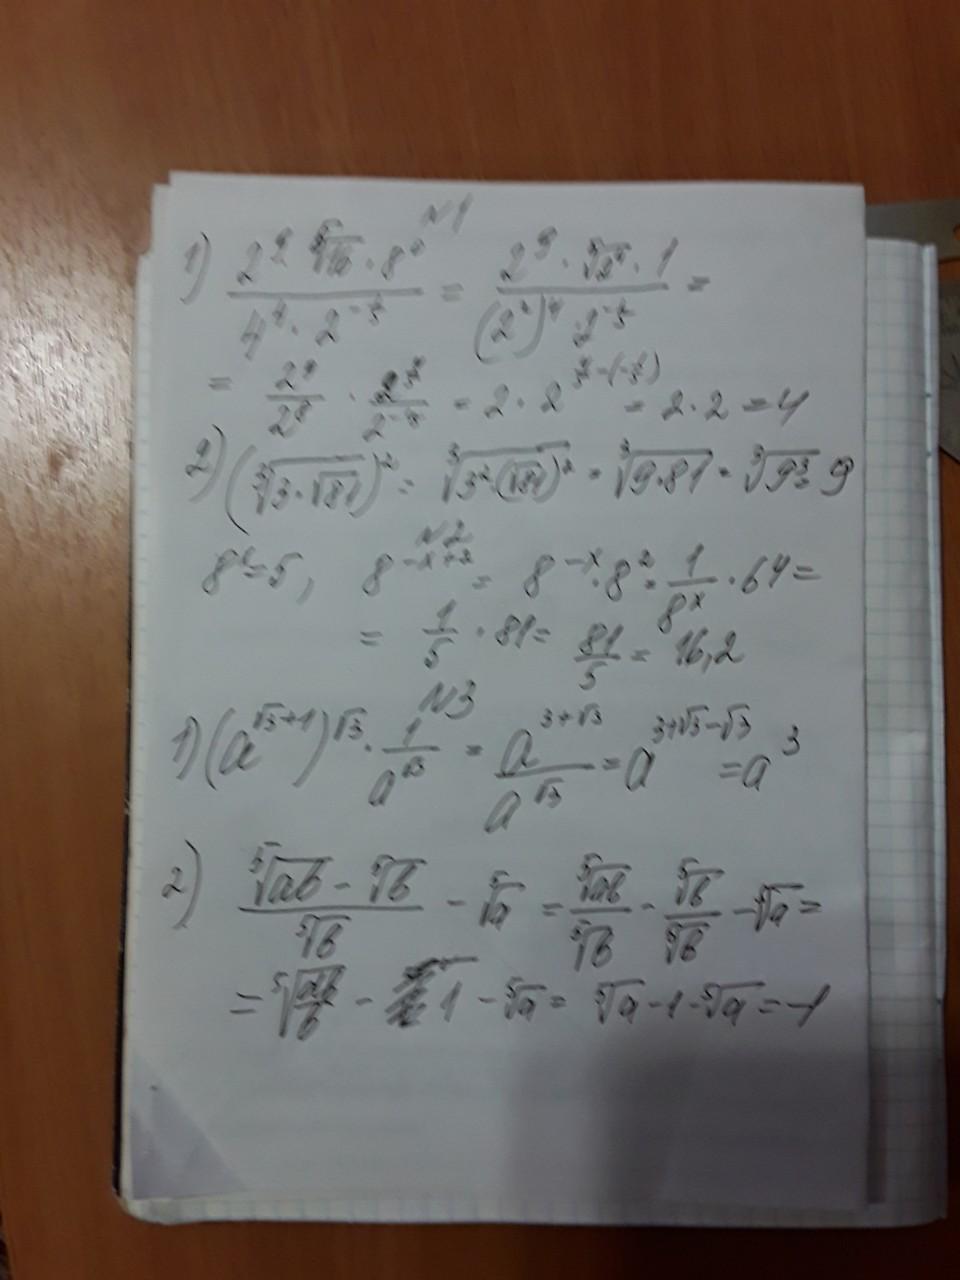 N1
1) 2^9 · ⁵√16 · 8^0 / 4^4 · 2^(-1/5) = 2^9 · ⁵√2^4 · 1 / (2^2)^4 · 2^(-1/5) =
= 2^9/2^8 · 2^(4/5)/2^(-1/5) = 2 · 2^(4/5-(-1/5)) = 2 · 2 = 4
2) (³√3·√81)^2 = ³√3^2·(√81)^2 = ³√9·81 = ³√9^3 = 9
N2
8^x = 5, 8^(-x+2) = 8^(-x) · 8^2 = 1/8^x · 64 =
= 1/5 · 81 = 81/5 = 16,2
N3
1) (a^(√3+1))^√3 · 1/a^√3 = a^(3+√3)/a^√3 = a^(3+√3-√3) = a^3
2) (⁵√ab - ⁵√b)/⁵√b - ⁵√a = ⁵√ab/⁵√b - ⁵√b/⁵√b - ⁵√a =
= ⁵√(ab/b) - 1 - ⁵√a = ⁵√a - 1 - ⁵√a = -1